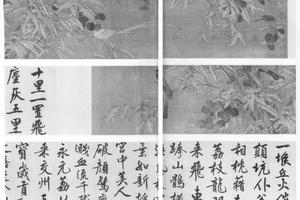 十里一置飛
塵灰五里
一堠兵火催
顛坑仆谷
相枕藉
荔枝龍眼
來飛車
跨山鶻橫
葉如新採
宮中美人
破顏驚塵
濺血流千
永元荔枝
來交州
寶歲貢